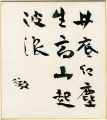 井底紅塵
生高山起
波浪